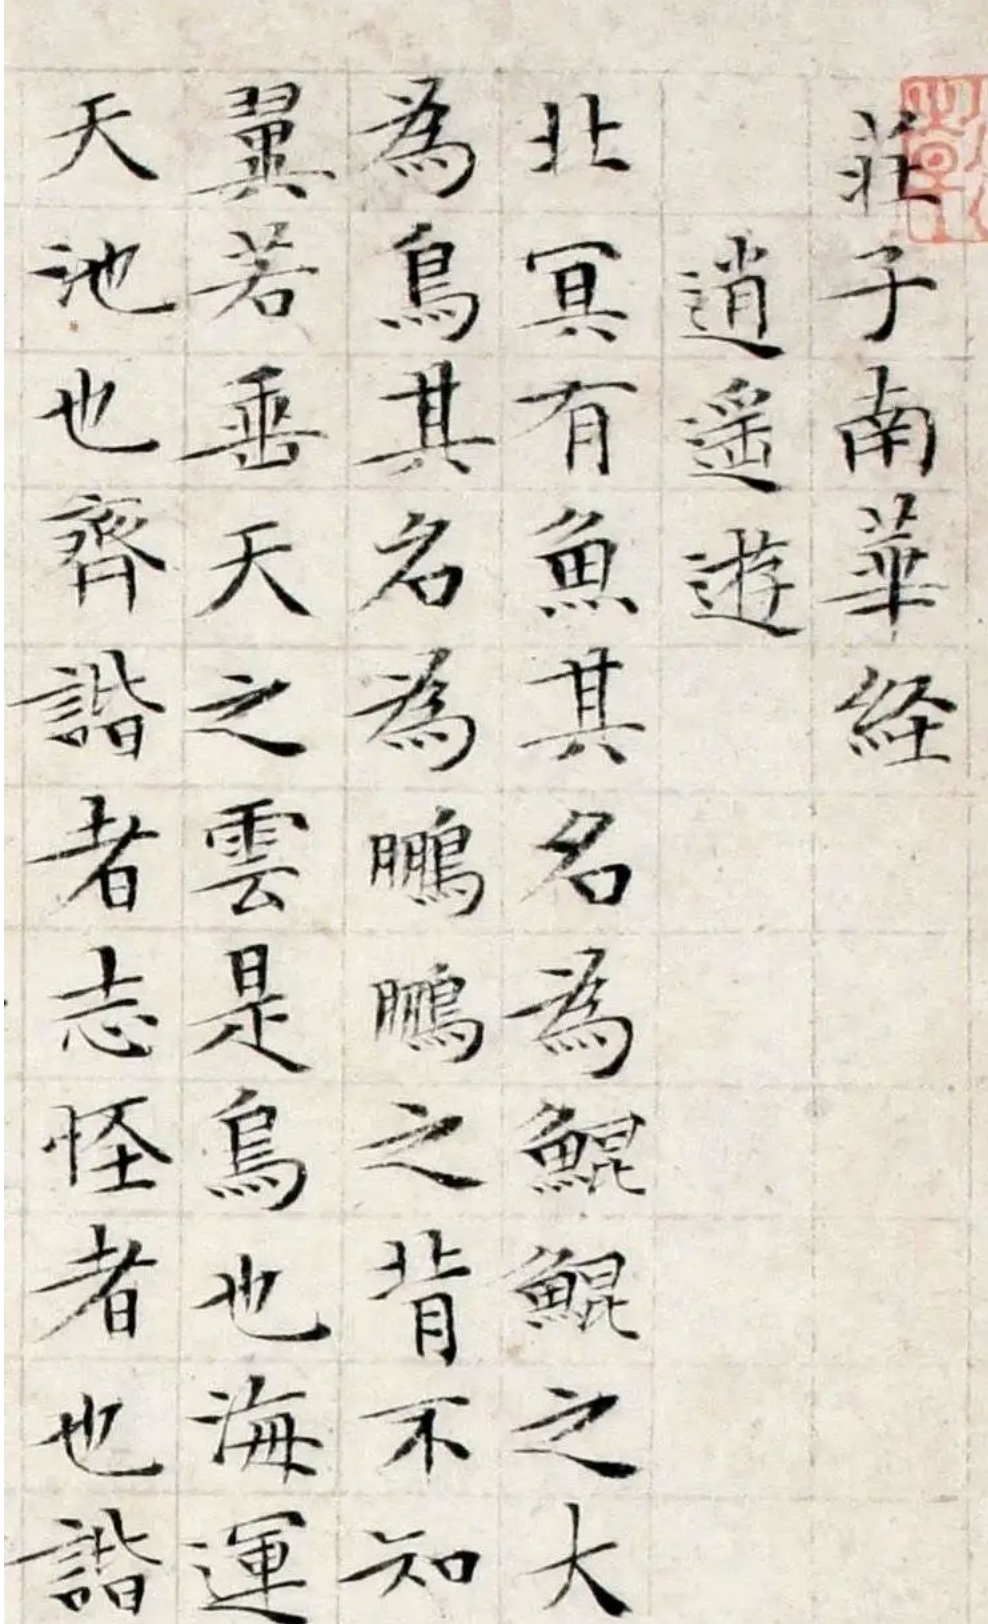 莊子南華経
逍遥遊
北冥有魚其名為鯤鯤之大
為鳥其名為鵬鵬之背不知
翼若垂天之雲是鳥也海運
天池也齊諧者志怪者也諧